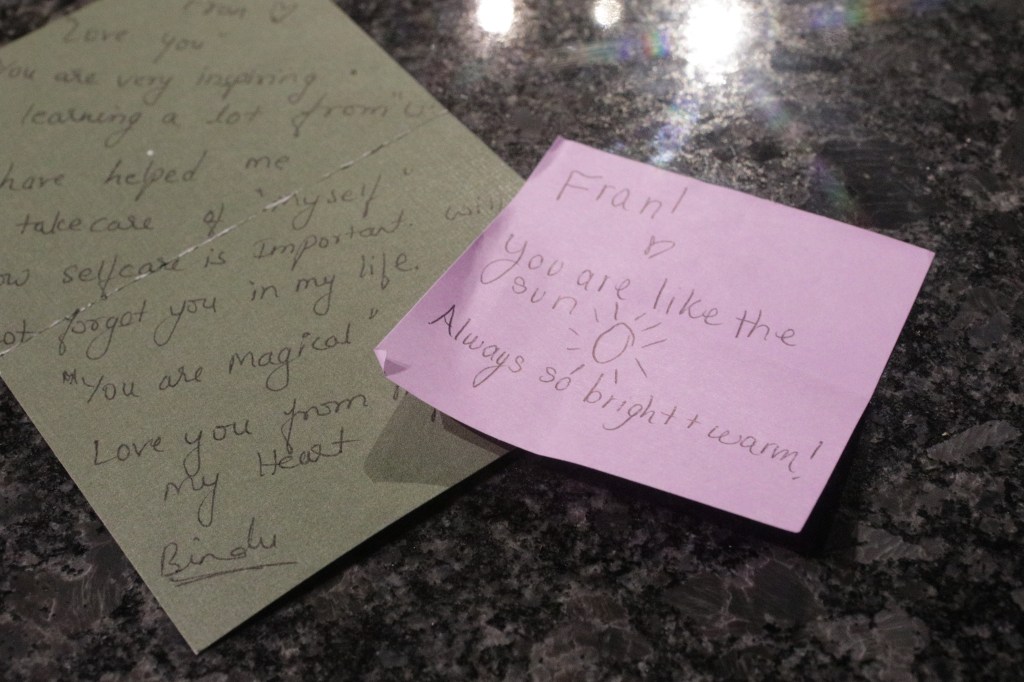 Fran ♡
Love you"
You are very inspiring.
learning a lot from "U
have helped me
take care of "myself"
ow selfcare is Important. will
ot forgot you in my life.
"You are magical"
Love you from
my Heart
Bindu
Fran!
♡
you are like the
sun
Always so bright + warm!